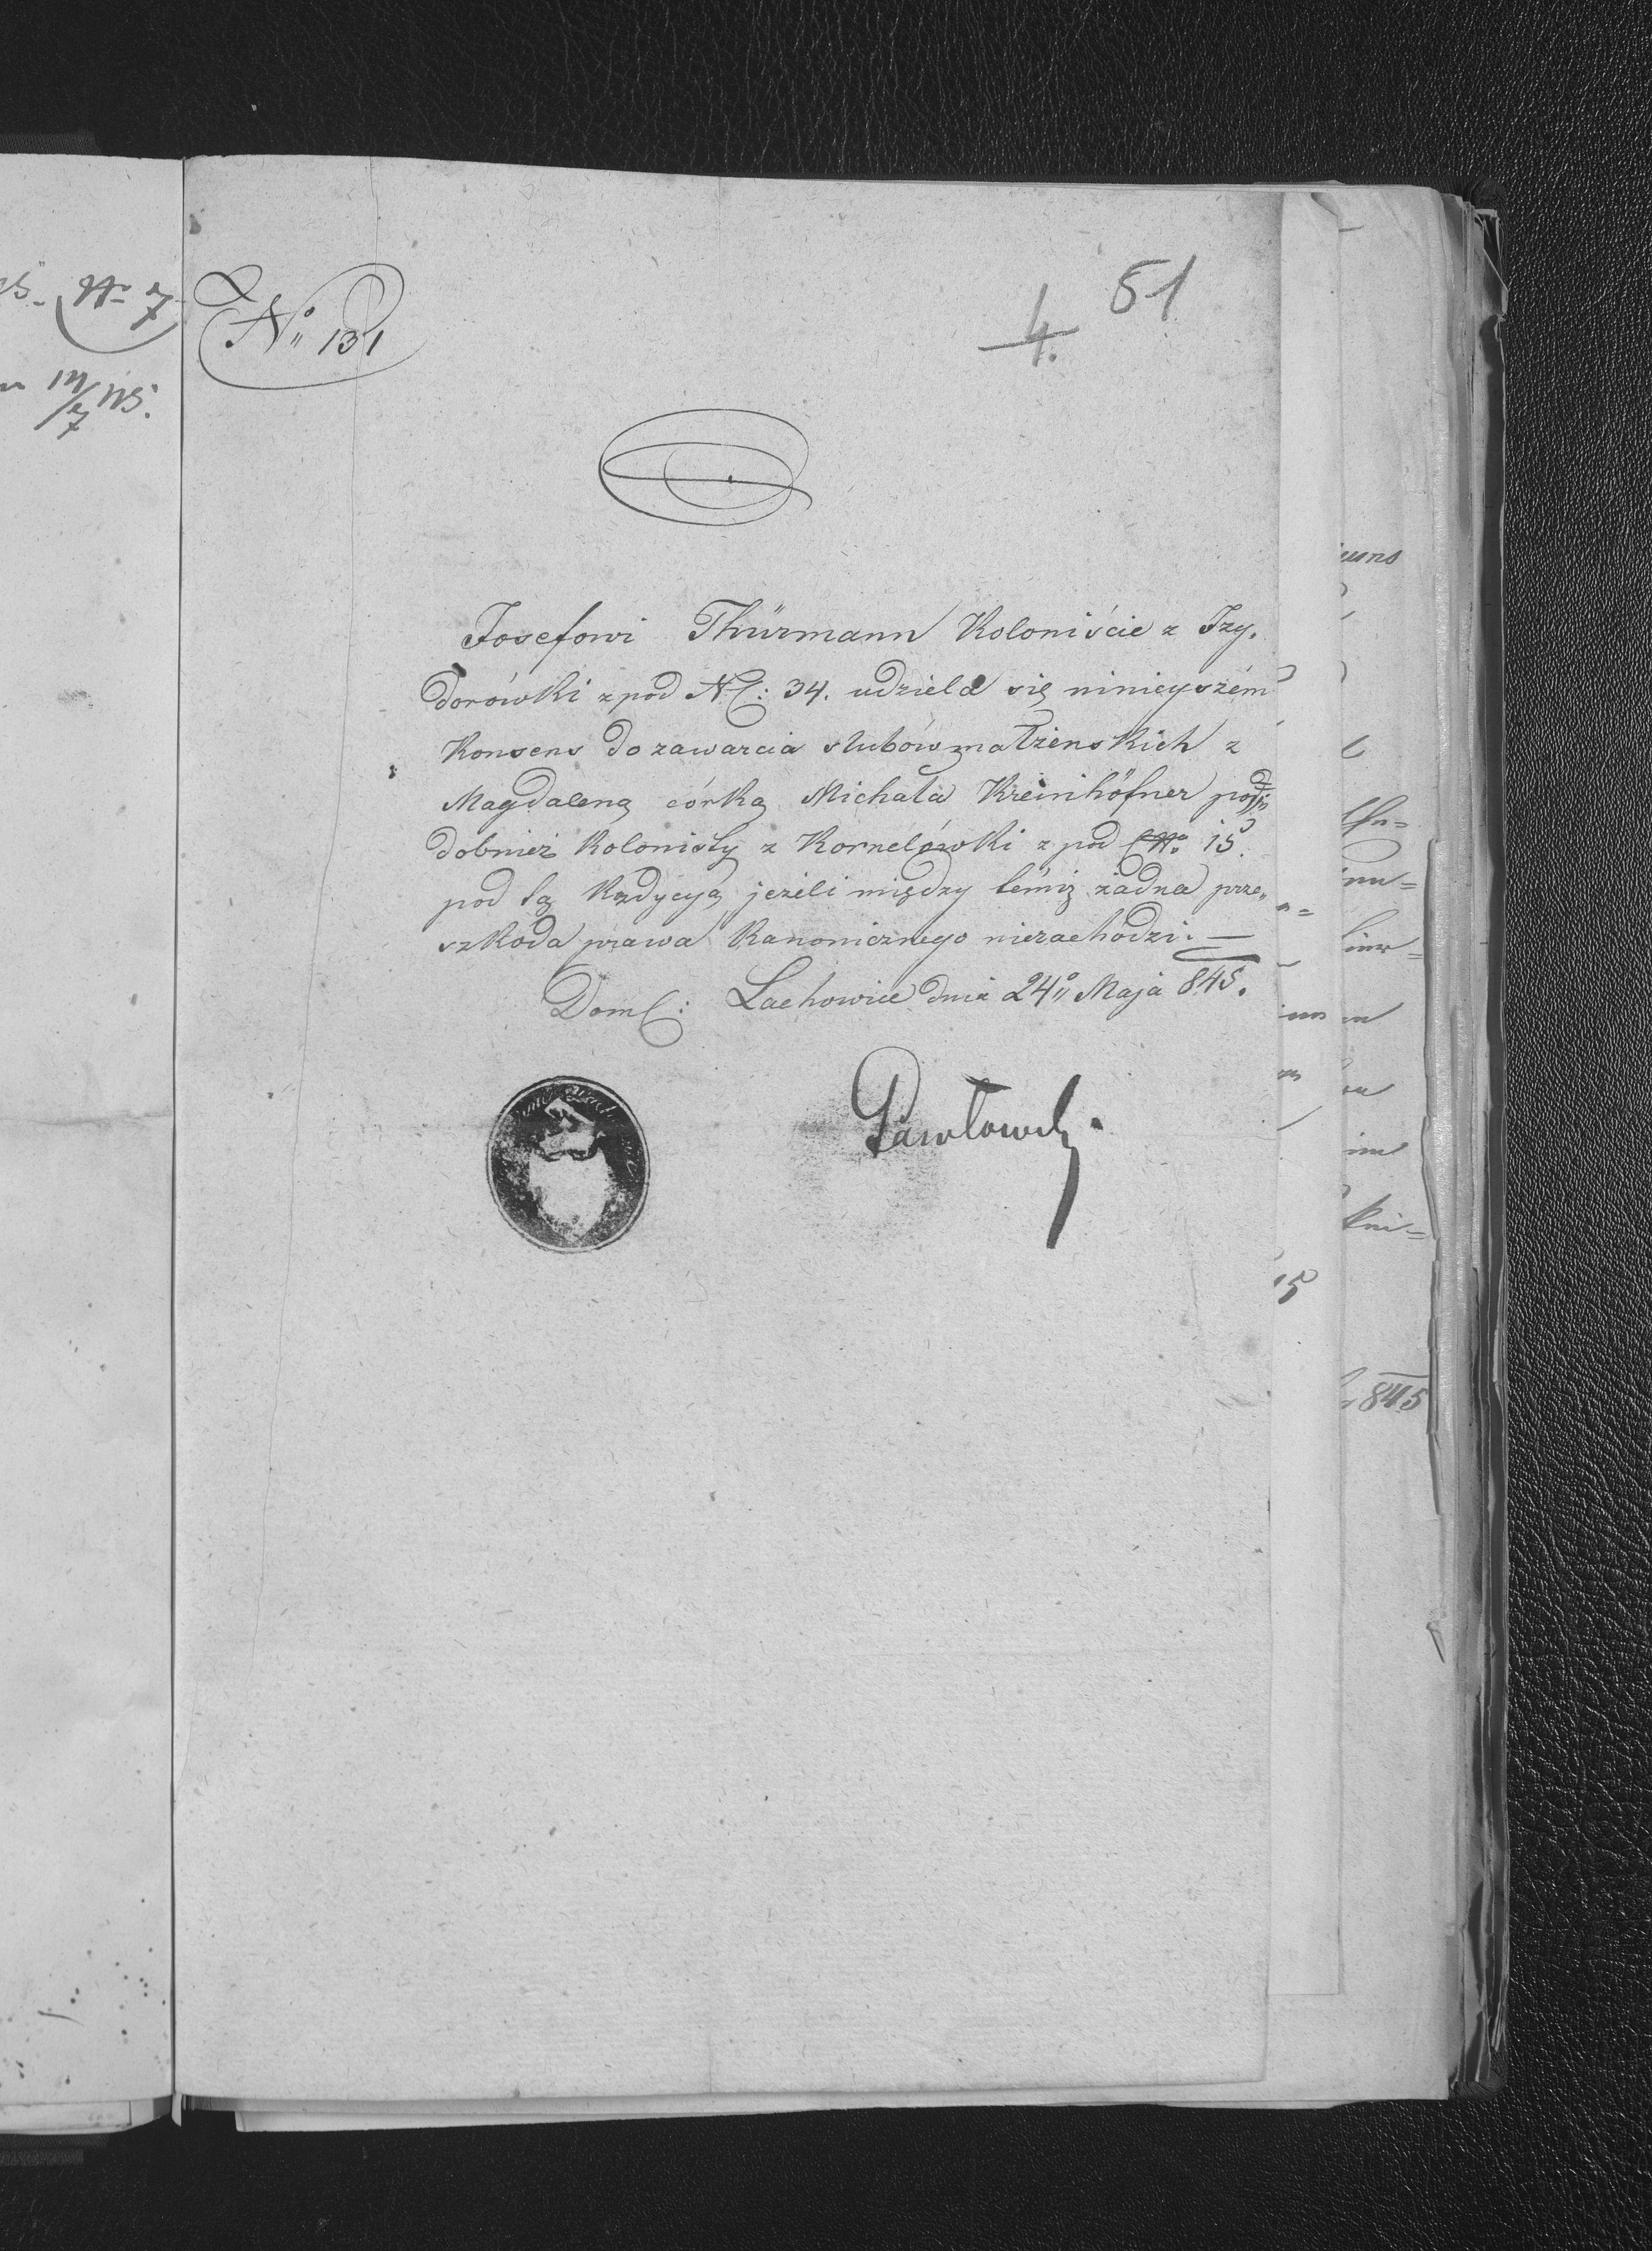 No 7
No 131
4. 51
Josefowi Thürmann Koloniście z Izy,
dorówki z pod NC: 34. udziela się ninieyszém
Konsens do zawarcia slubów małżenskich z
Magdaleną córką Michała Kreinhöfner po
dobnież Kolonisty z Kornelówki z pod No 15.
pod tą Kądycyą jeżeli między témiż żadna prze„
szkoda prawa Kanonicznego niezachodzi. —
Dom: Lachowice dnia 24o Maja 845.
Pawłowski
15
845